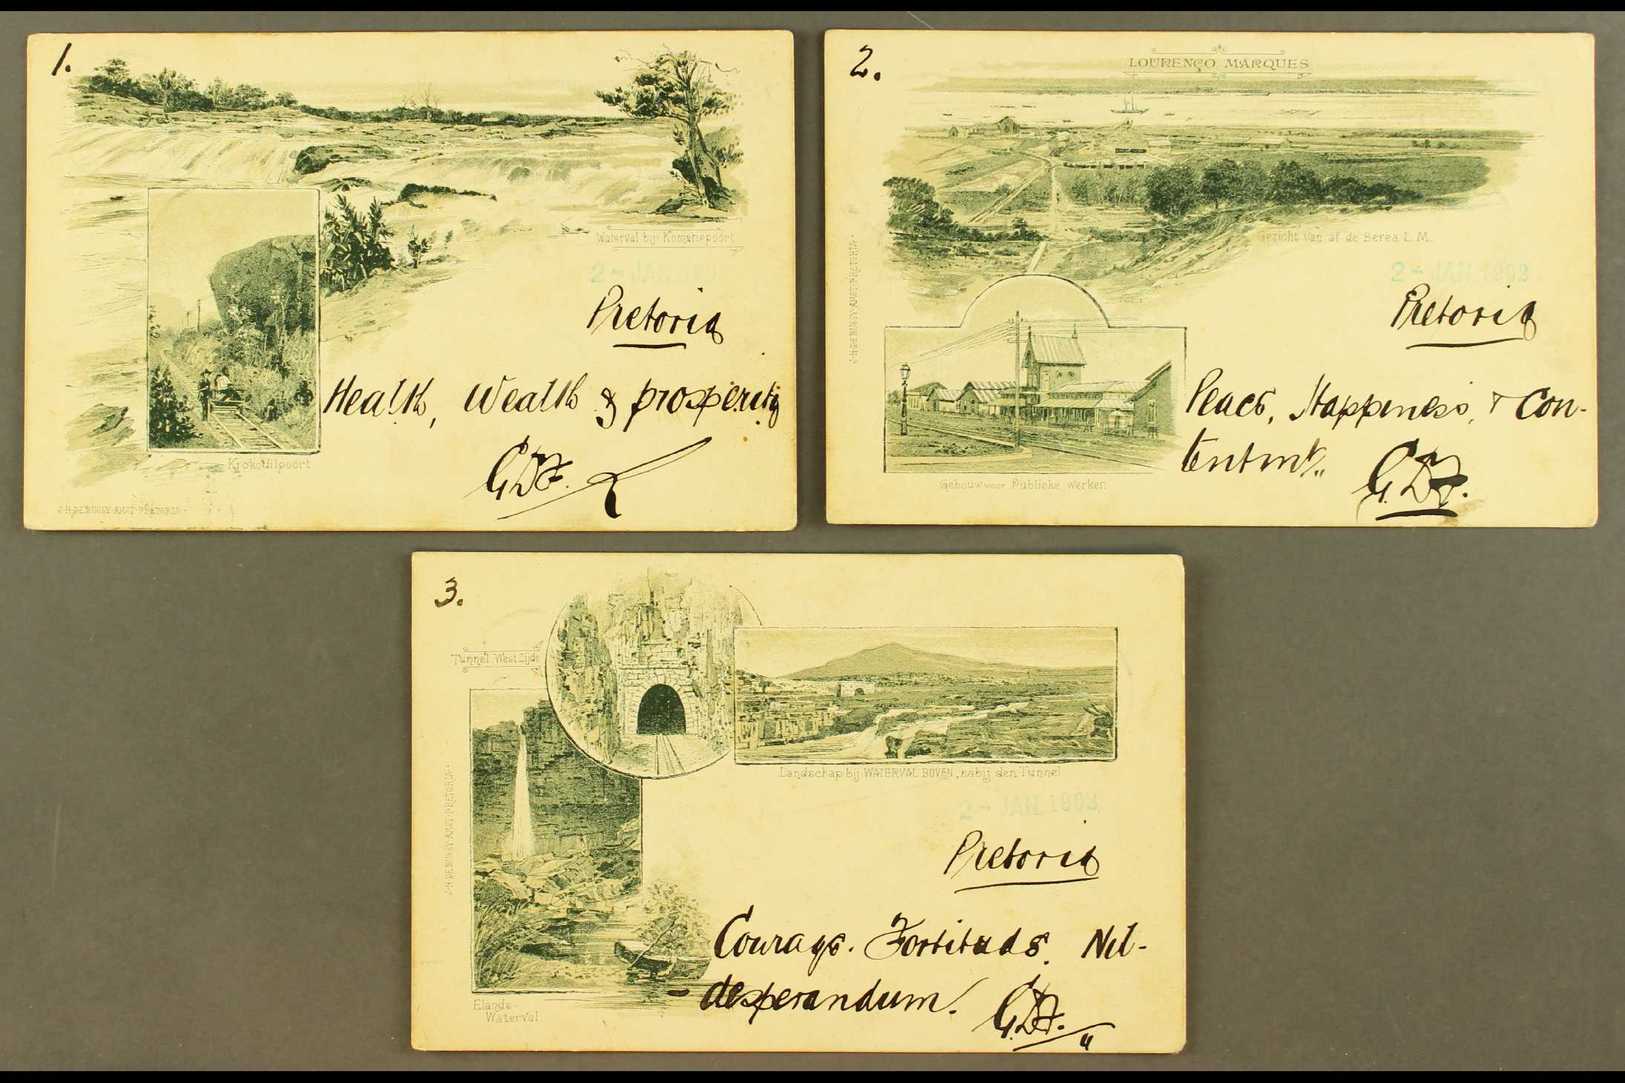 1.
Waterval bij Komatiepoort
2- JAN
Pretoria
Health, Wealth & prosperity
G.D.F.
Krokodilpoort
J.H. DE BUSSY AMST. PRETORIA
2.
LOURENÇO MARQUES
Gezicht van af de Berea L.M.
J.H. DE BUSSY AMST. PRETORIA
2- JAN.1898
Pretoria
Peace, Happiness, & Con-
tentmt,,
G.D.F.
Gebouw voor Publieke werken
3.
Tunnel Westzijde
Landschap bij WATERVAL BOVEN, nabij den Tunnel
J.H. DE BUSSY AMST. PRETORIA
2- JAN.1898
Pretoria
Courage. Fortitude. Nil-
-desperandum!
G.D.F.
Elands-
Waterval